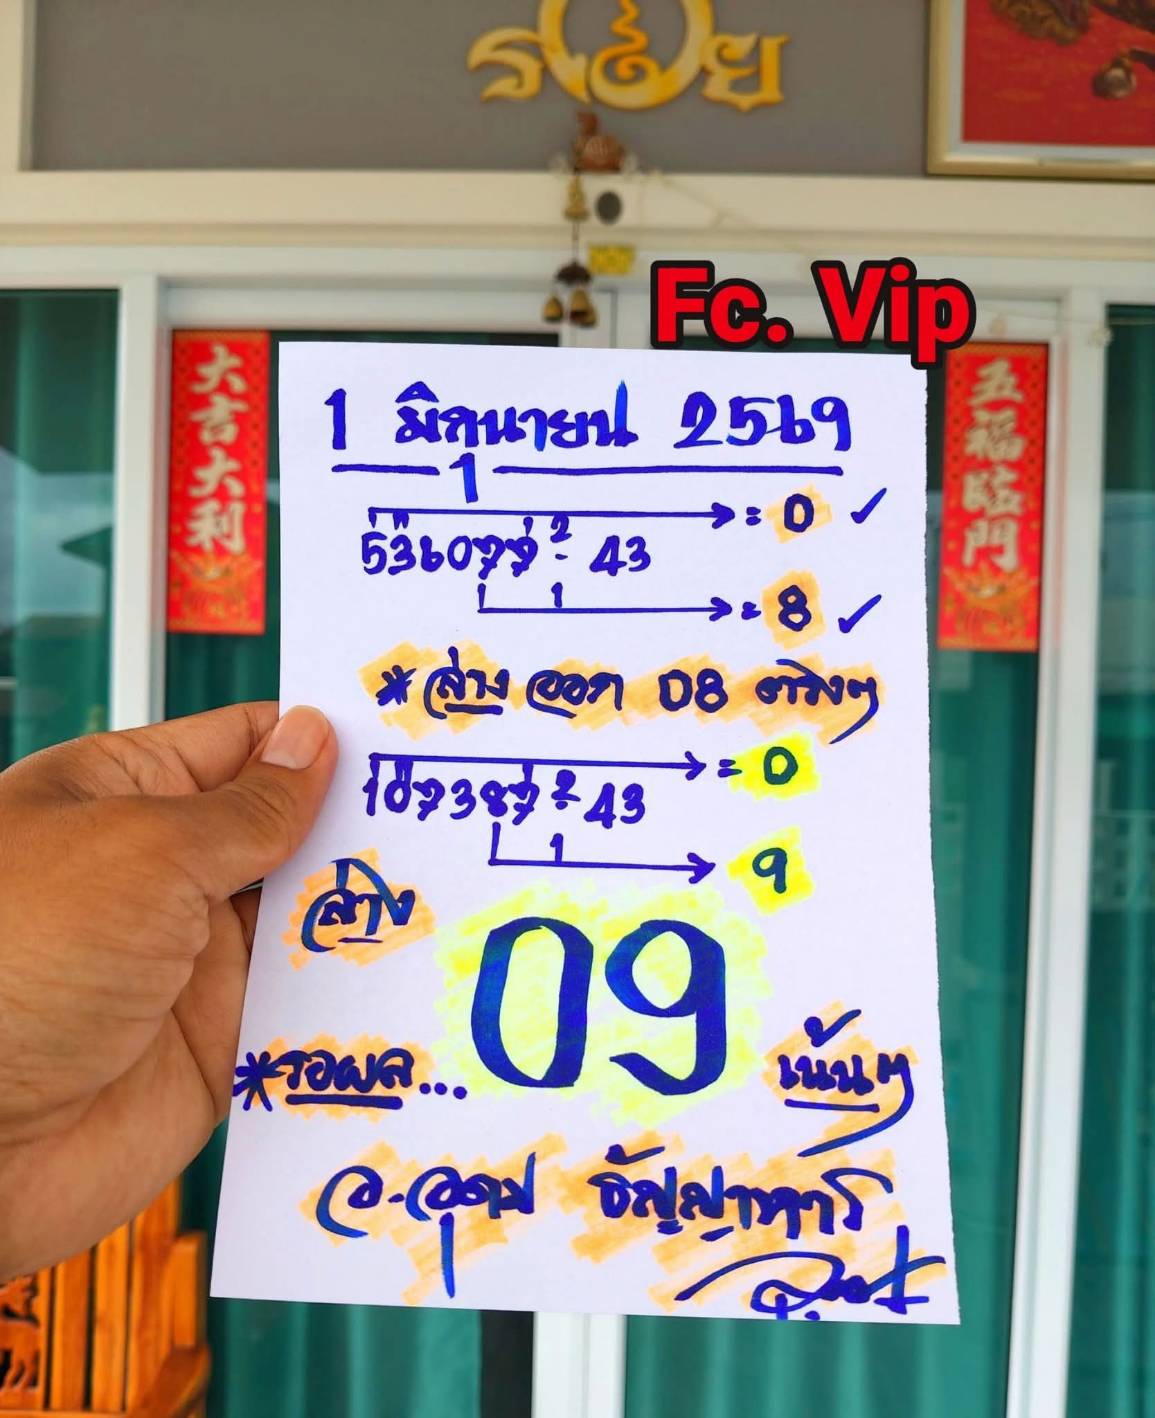 รวย
Fc. Vip
大吉大利
五福臨門
1 มิถุนายน 2569
1
= 0 ✓
536077 2 - 43
1
= 8 ✓
* ล่าง ออก 08 ตรงๆ
= 0
107387 2 - 43
1
9
ล่าง
09
*รอผล...
เน้นๆ
อ.อุดม ธัญญาหาร